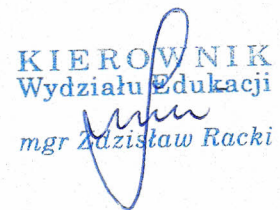 KIEROWNIK
Wydziału Edukacji
mgr Zdzisław Racki